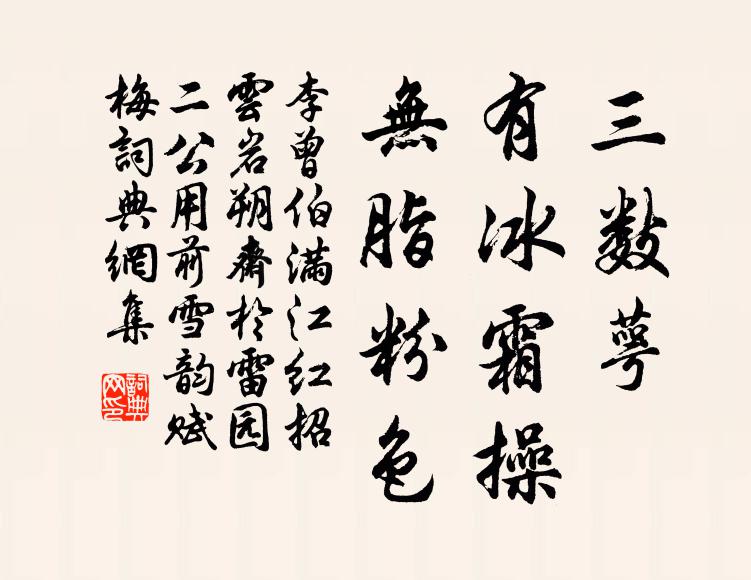 三數萼
有冰霜操
無脂粉色
李曾伯滿江紅招
雲岩朔齋於雷园
二公用前雪韵赋
梅詞典網集
詞典网印